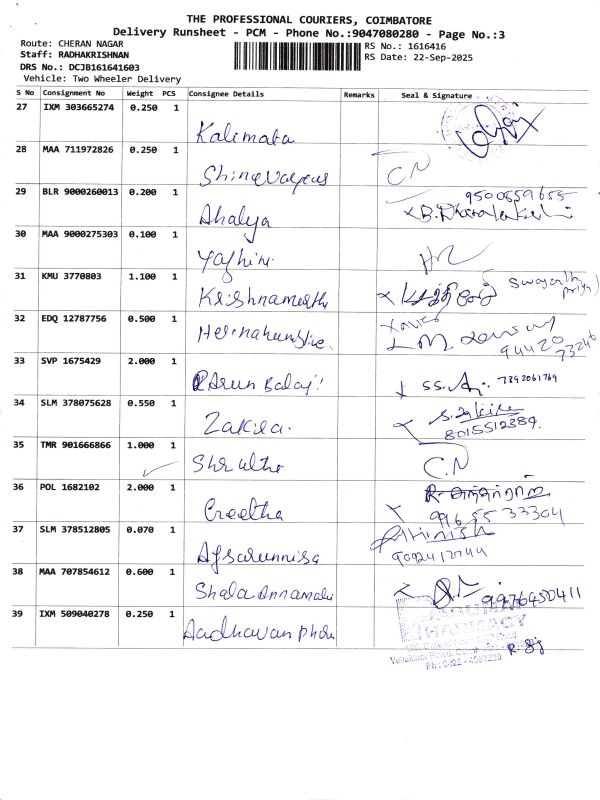 THE PROFESSIONAL COURIERS, COIMBATORE
Delivery Runsheet - PCM - Phone No.:9047080280 - Page No.:3
Route: CHERAN NAGAR
RS No.: 1616416
Staff: RADHAKRISHNAN
RS Date: 22-Sep-2025
DRS No.: DCJB161641603
Vehicle: Two Wheeler Delivery
S No Consignment No Weight PCS Consignee Details Remarks Seal & Signature
27 IXM 303665274 0.250 1 Kalimata
28 MAA 711972826 0.250 1 C N
29 BLR 9000260013 0.200 1 Ahalya 9500859655
30 MAA 9000275303 0.100 1 Yazhini
31 KMU 3770803 1.100 1 Krishnamurthy
32 EDQ 12787756 0.500 1 Xavier
94420
73246
33 SVP 1675429 2.000 1 Arun Balaji 7892061769
34 SLM 378075628 0.550 1 Zakira S. Zakira
8015512389
35 TMR 901666866 1.000 1 C.N
36 POL 1682102 2.000 1 Creetha
99655 33304
37 SLM 378512805 0.070 1 Afsarunnisa
9092412744
38 MAA 707854612 0.600 1 Shala Annamalai 9976450411
39 IXM 509040278 0.250 1 Aadhavan Phar